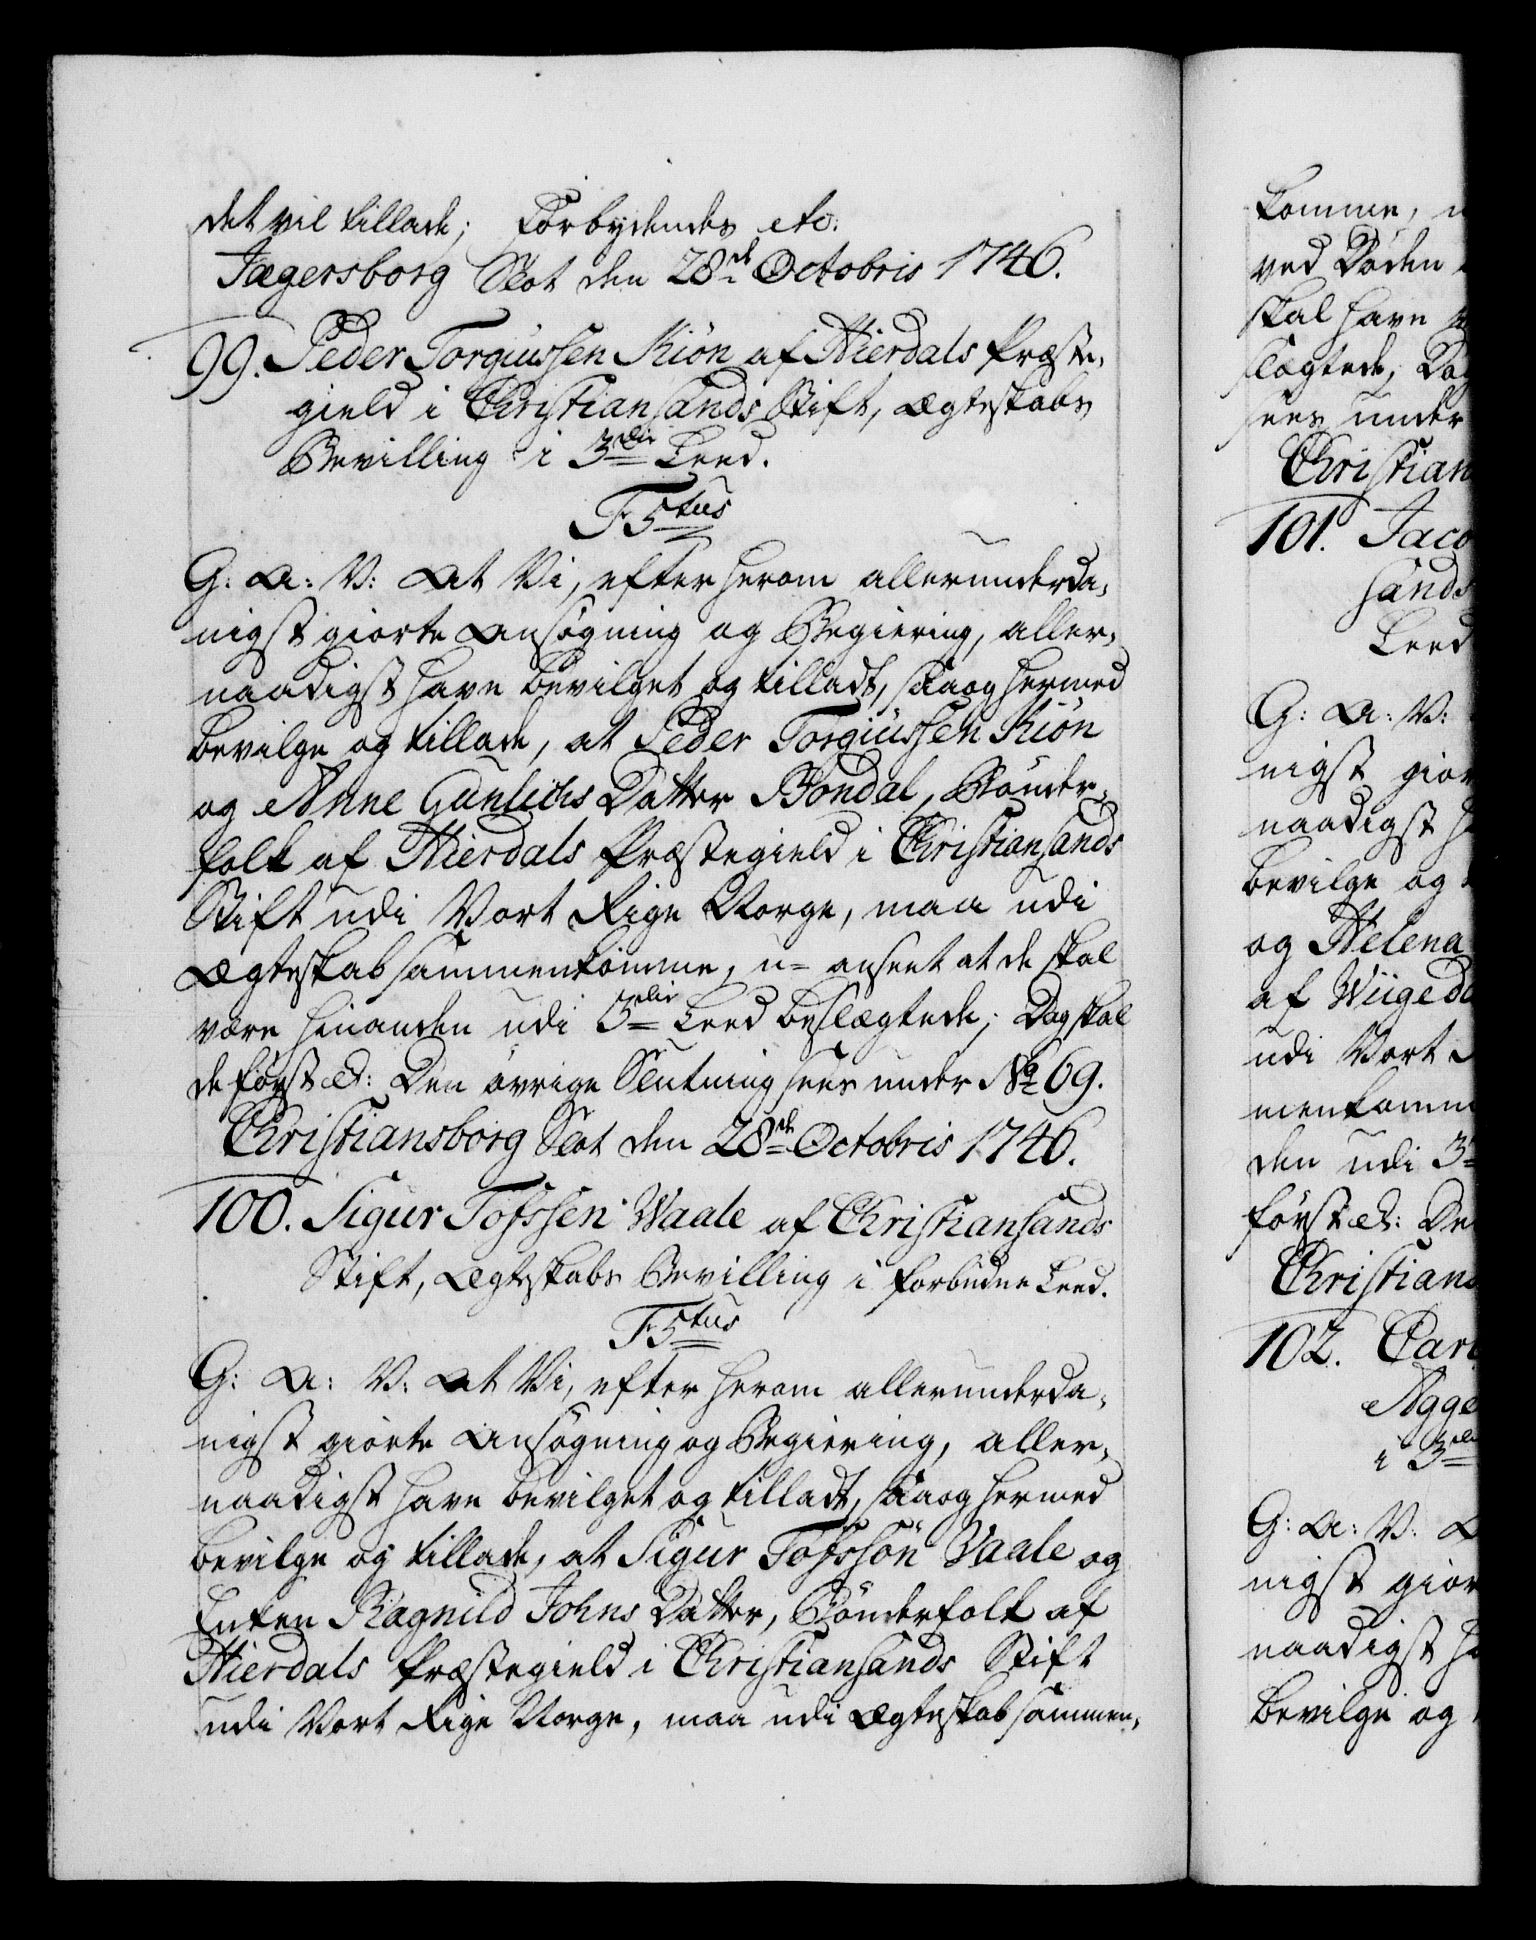 det vil tillade; Forbydendes etc:
Jægersborg Slot den 28de Octobris 1746.
99. Peder Torgiussen Kiøn af Hierdals Præste-
gield i Christiansands Stift, Ægteskabs
Bevilling i 3die Leed.
F5tus
G: A: V: At Vi, efter herom allerunderda-
nigst giorte Ansøgning og Begiering, aller-
naadigst have bevilget og tilladt, saa og hermed
bevilge og tillade, at Peder Torgiussen Kiøn
og Anne Gunlichs Datter Bondal, Bønder-
folk af Hierdals Præstegield i Christiansands
Stift udi Vort Rige Norge, maa udi
Ægteskab sammenkomme, u= anseet at de skal
være hinanden udi 3die Leed beslægtede; Dog skal
de først etc: Den øvrige Slutning sees under No 69.
Christiansborg Slot den 28de Octobris 1746.
100. Sigur Tofssen Waale af Christiansands
Stift, Ægteskabs Bevilling i forbudne Leed.
F5tus
G: A: V: At Vi, efter herom allerunderda-
nigst giorte Ansøgning og Begiering, aller-
naadigst have bevilget og tilladt, saa og hermed
bevilge og tillade, at Sigur Tofssøn Vaale og
Enken Ragnild Johns Datter, Bønderfolk af
Hierdals Præstegield i Christiansands Stift
udi Vort Rige Norge, maa udi Ægteskab sammen-
komme,
ved Døden
skal have
slægtede, Dog
sees under
Christian
101. Jaco
sands
Leed
G: A: V:
nigst gior
naadigst h
bevilge og
og Helena
af Wiige
udi Vort
menkomm
den udi 3
først etc: De
Christians
102. Car
Agge
i 3die
G: A: V:
nigst gior
naadigst h
bevilge og